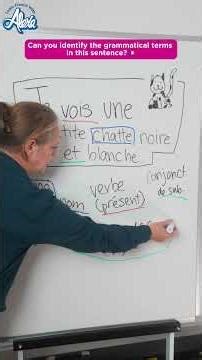 Alexa
Can you identify the grammatical terms
in this sentence?
vois une
tite chatte noire
et blanche
verbe
nom (présent)
Conjonct
de sub.